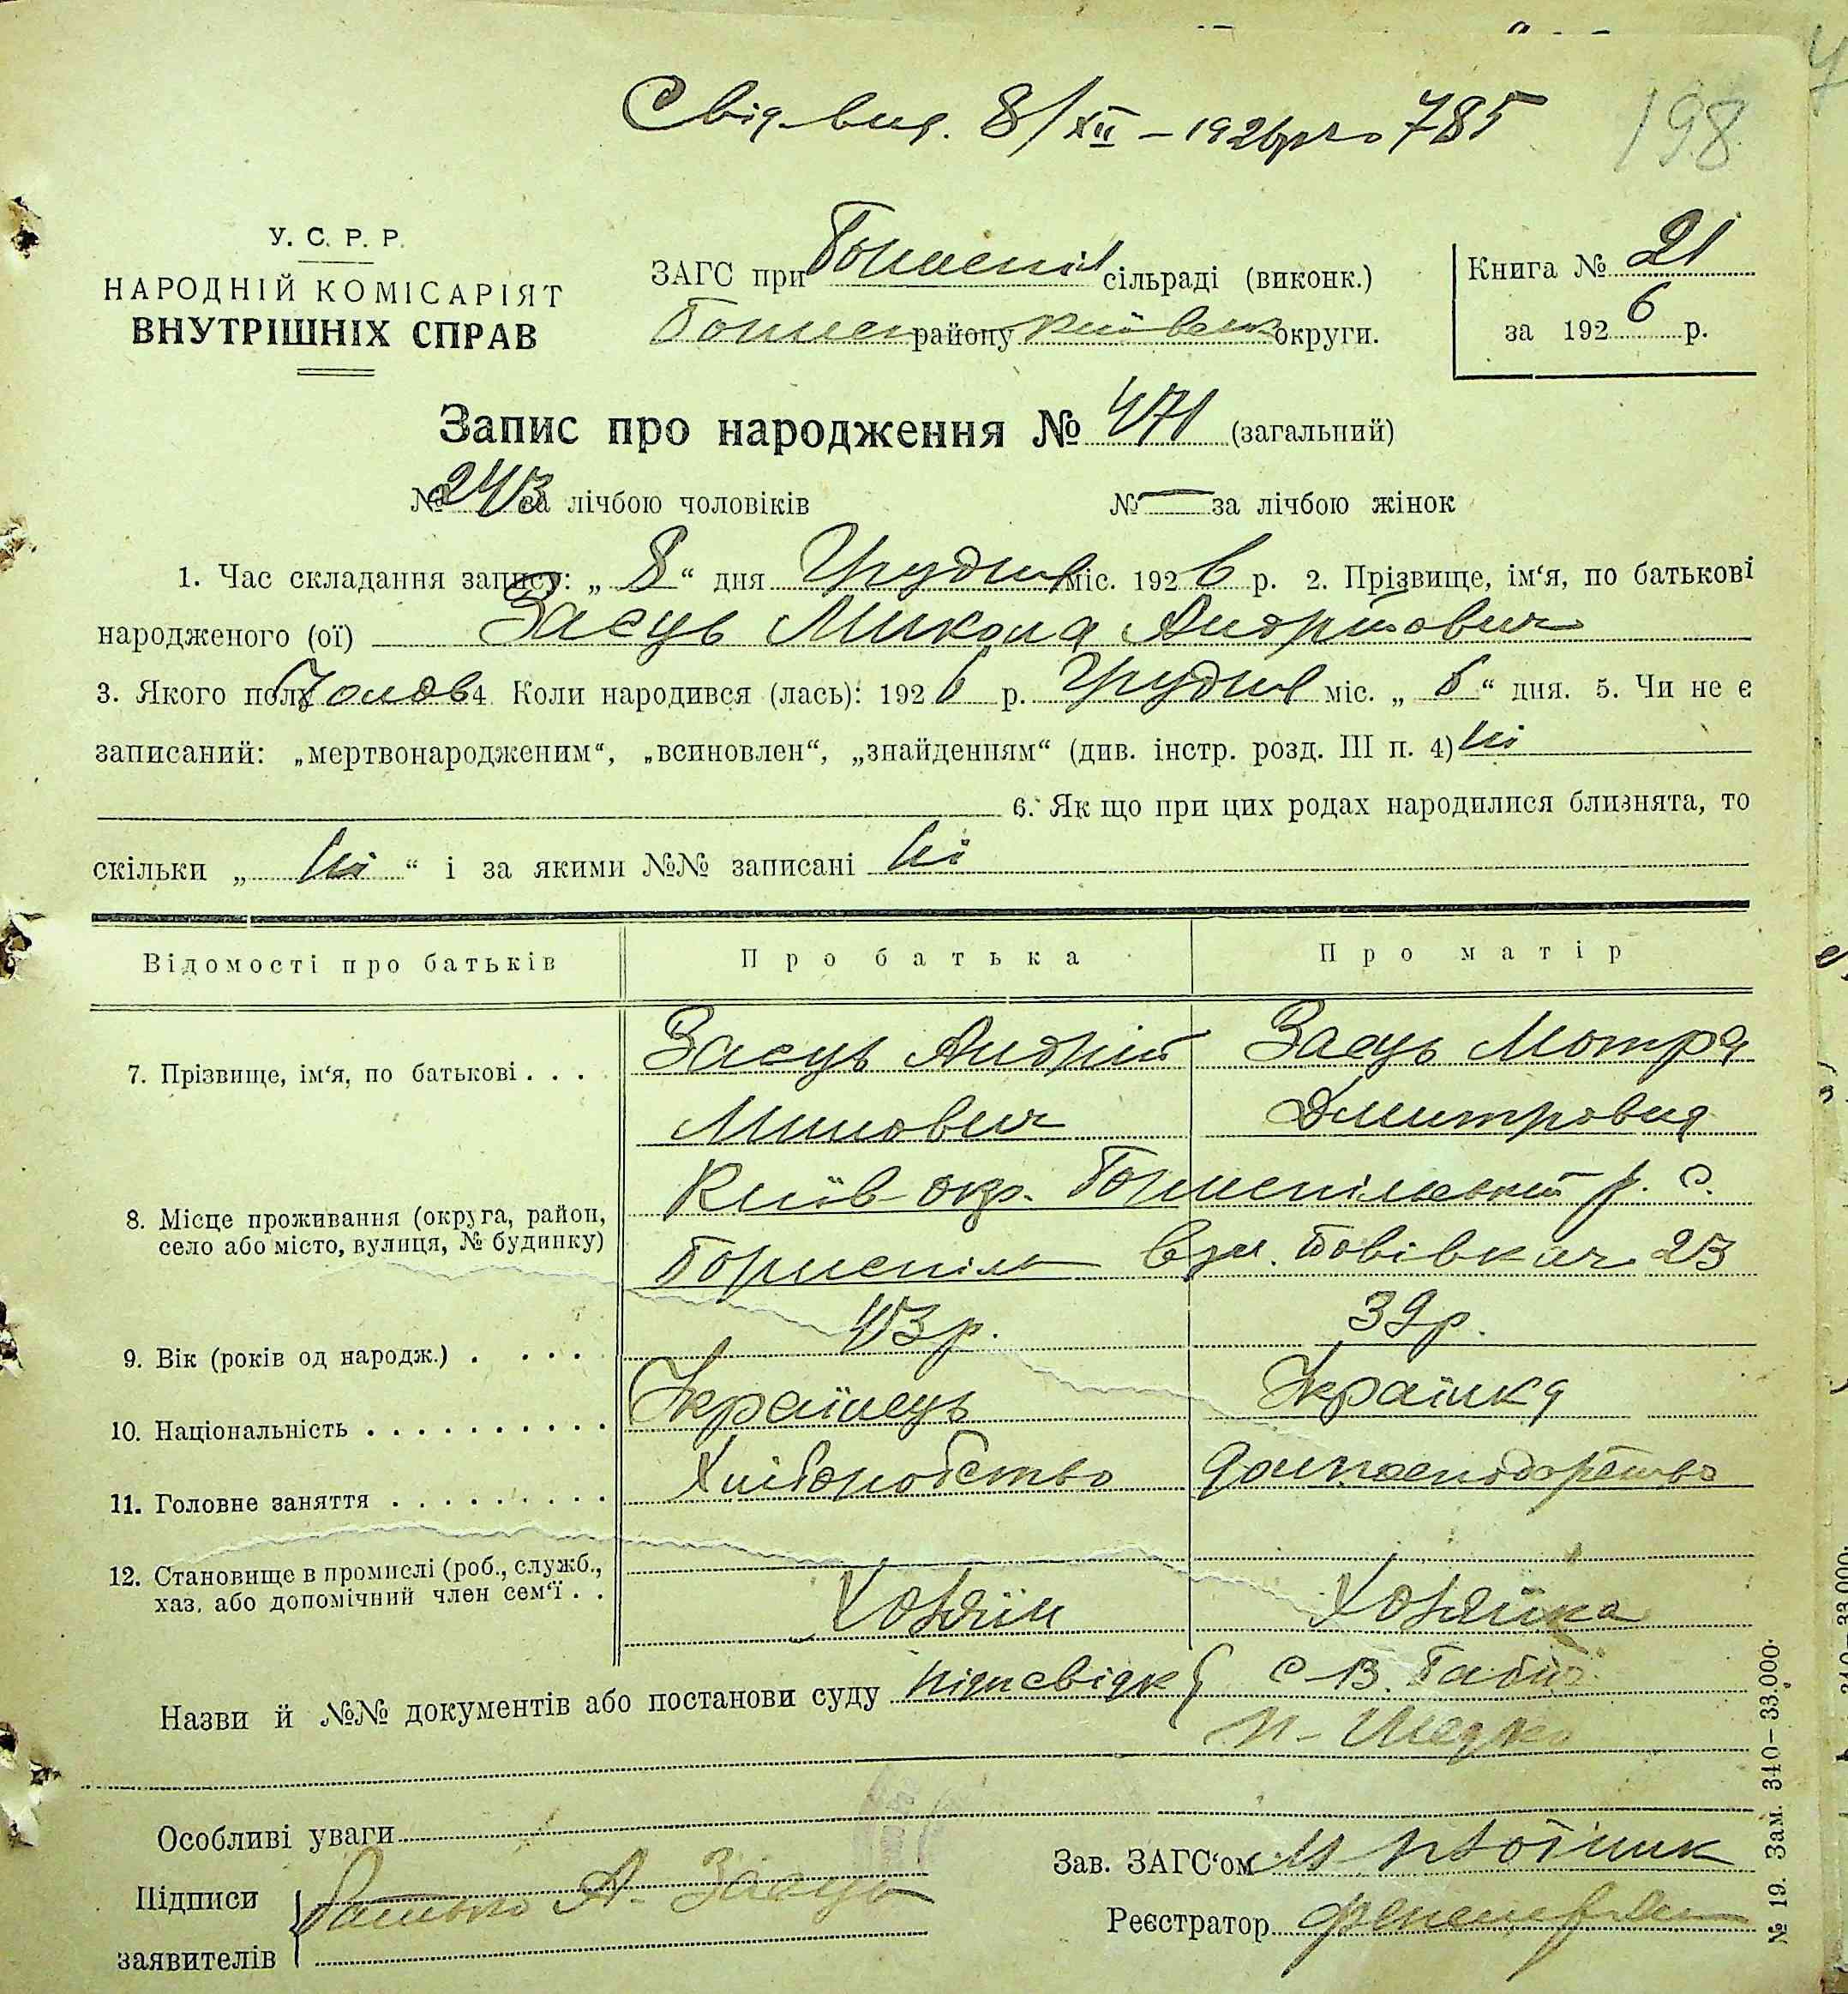 Свід. вид. 8/XII – 1926 р № 785
198
У. С. Р. Р.
НАРОДНІЙ КОМІСАРІЯТ
ВНУТРІШНІХ СПРАВ
ЗАГС при Бориспіл сільраді (виконк.)
району Київськ округи.
Книга № 21
за 1926 р.
Запис про народження № 471 (загальний)
№ 243 за лічбою чоловіків № — за лічбою жінок
1. Час складання запису: „ 8 “ дня Грудня міс. 1926 р. 2. Прізвище, ім‘я, по батькові
народженого (ої) Заєць Микола Андрійович
3. Якого полу Чолов 4. Коли народився (лась): 1926 р. Грудня міс. „ 6 “ дня. 5. Чи не є
записаний: „мертвонародженим“, „всиновлен“, „знайденням“ (див. інстр. розд. III п. 4) ні
6. Як що при цих родах народилися близнята, то
скільки „ ні “ і за якими №№ записані ні
Відомості про батьків Про батька Про матір
7. Прізвище, ім‘я, по батькові . . . Заєць Андрій Заєць Мотря
Минович Дмитровна
8. Місце проживання (округа, район, Київ окр. Бориспільський р. с.
село або місто, вулиця, № будинку) Бориспіль вул. 23
9. Вік (років од народж.) . . . . 43 р. 39 р.
10. Національність . . . . . . . . . . Українець Українка
11. Головне заняття . . . . . . . . . Хліборобство
12. Становище в промислі (роб., служб.,
хаз. або допомічний член сем‘ї . . Хозяїн Хозяйка
Назви й №№ документів або постанови суду
Особливі уваги
Зав. ЗАГС‘ом
Підписи батько А. Заєць
Реєстратор
заявителів
№ 19. Зам. 340–33.000.